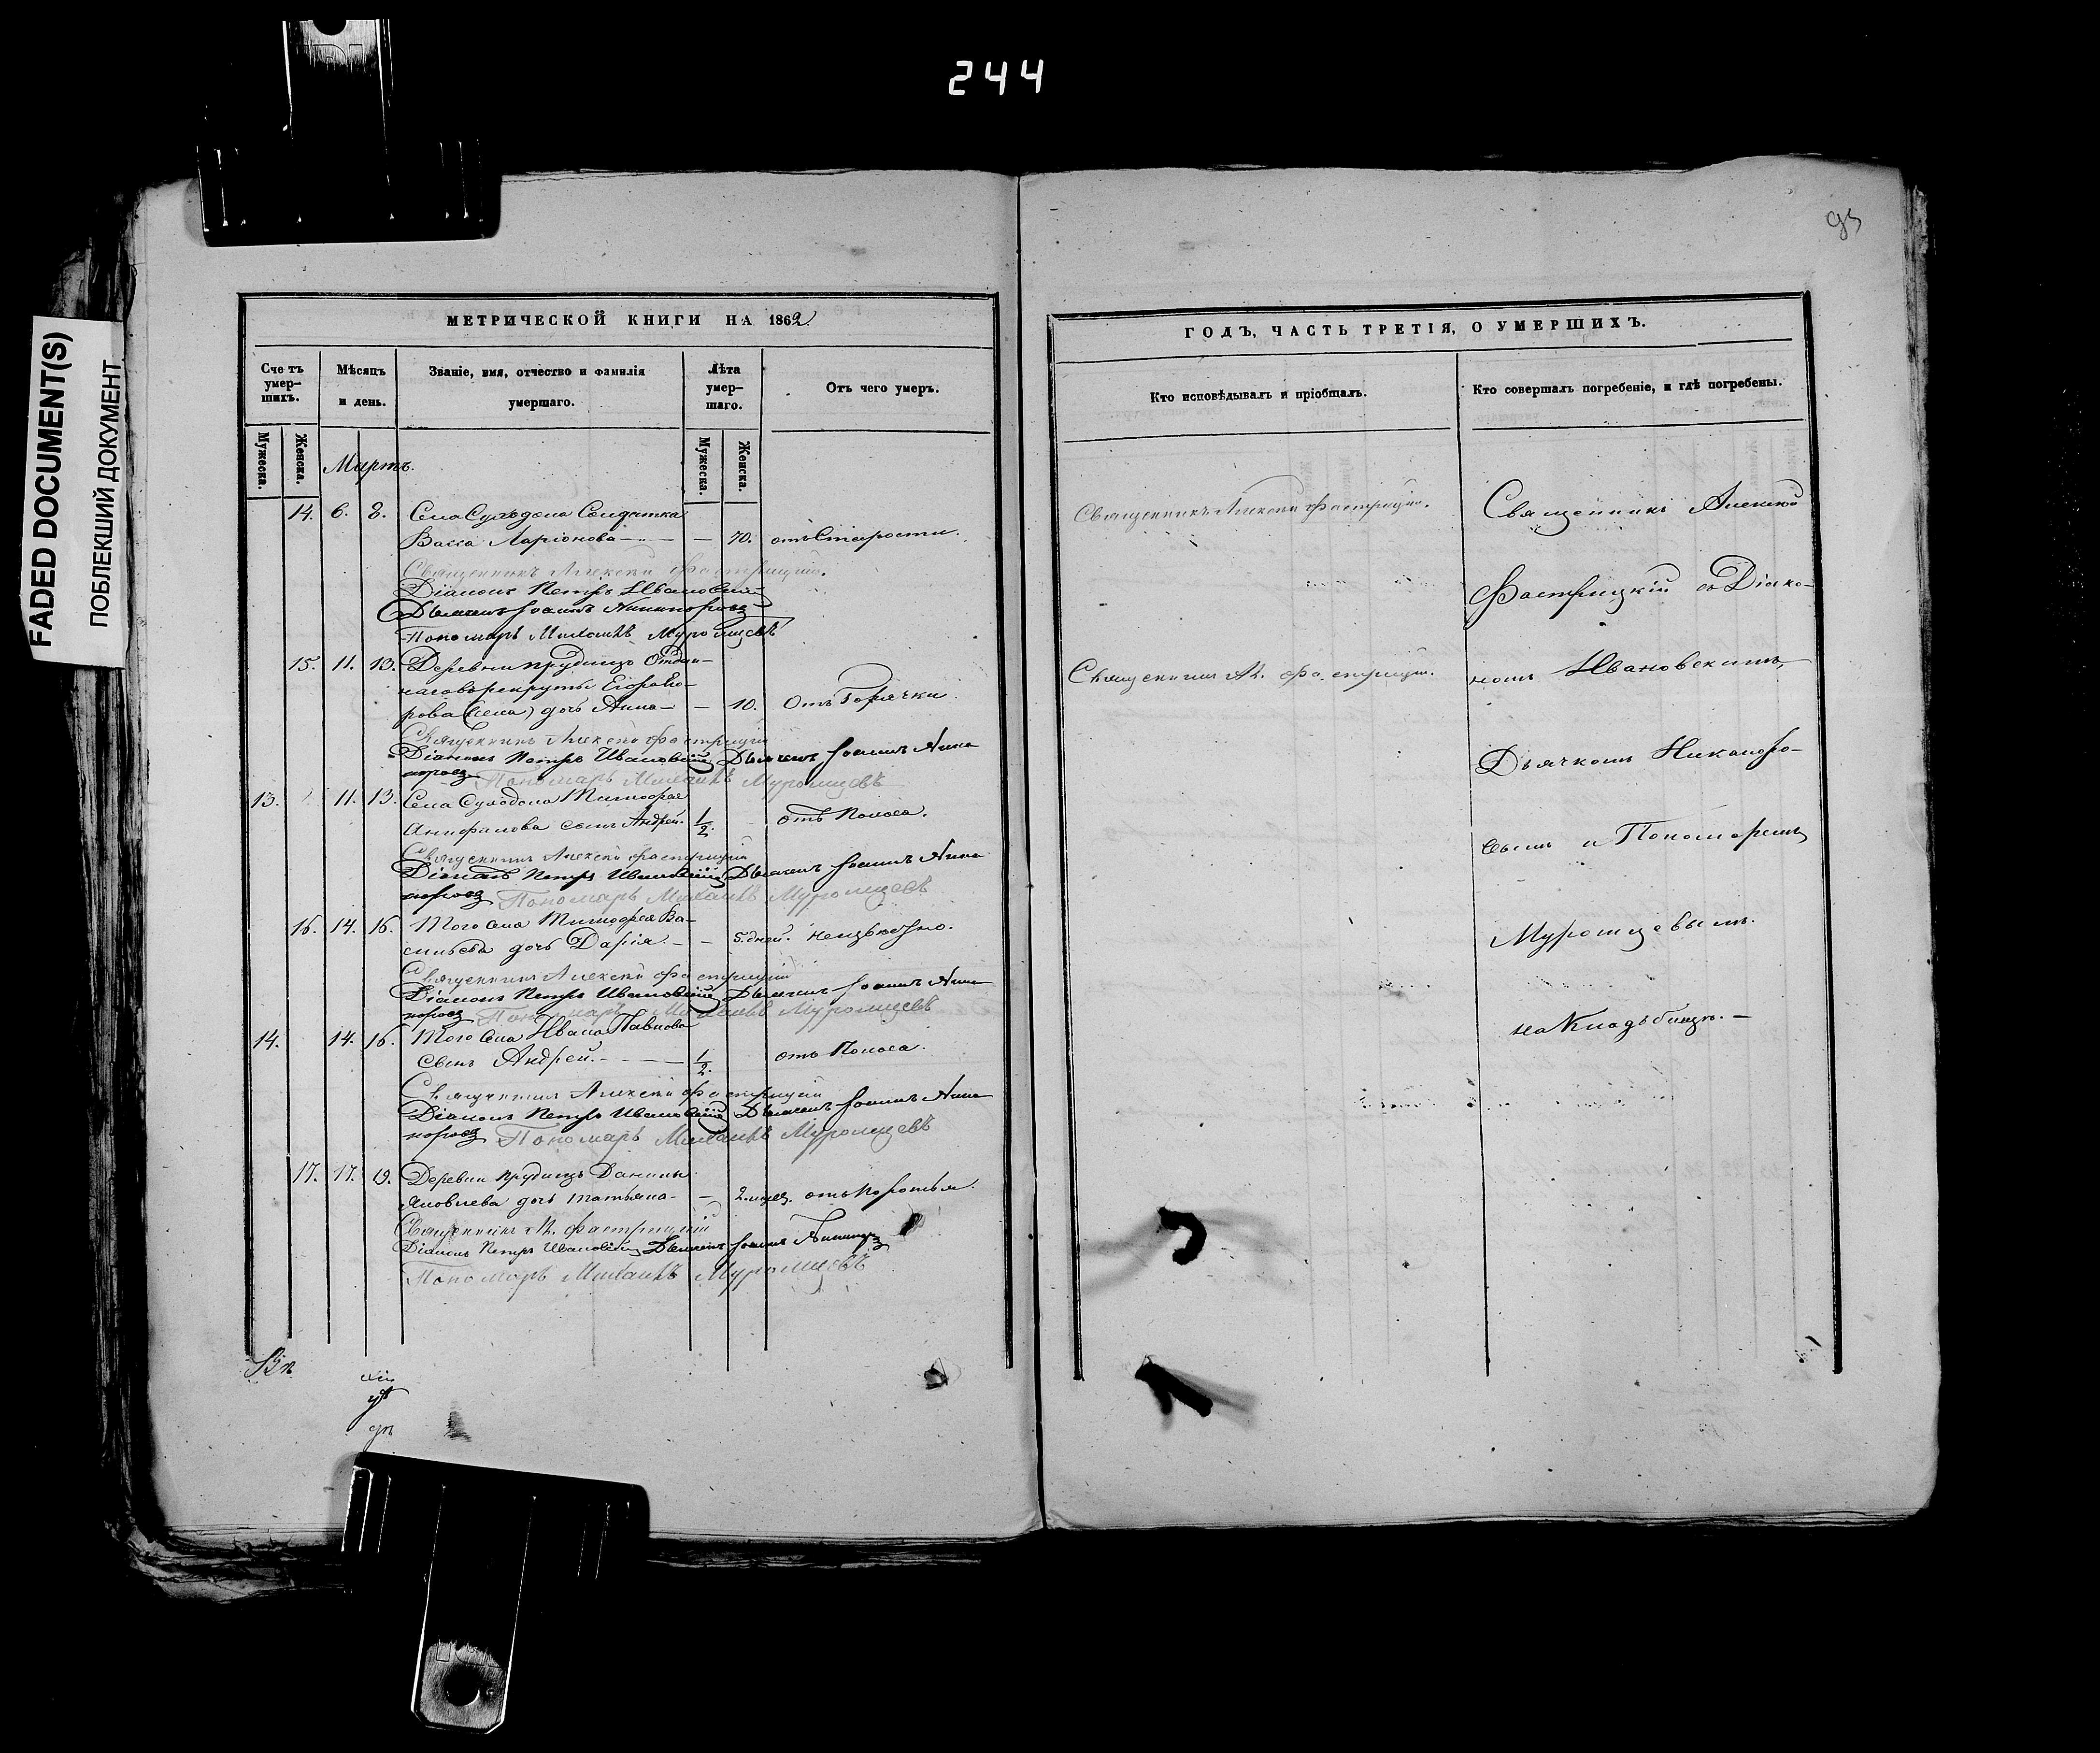 244
93
FADED DOCUMENT(S)
ПОБЛЕКШИЙ ДОКУМЕНТ
МЕТРИЧЕСКОЙ КНИГИ НА 1862
Счетъ умер-
шихъ.
Мѣсяцъ
и день.
Званіе, имя, отчество и фамилія
умершаго.
Лѣта
умер-
шаго.
Отъ чего умеръ.
Мужеска.
Женска.
Мужеска.
Женска.
Мартъ.
14. 6. 8. Села Суходола Солдатка
Васса Ларіонова — — 70. отъ Старости.
Священникъ Алексѣй Фастрицкій.
Діаконъ Петръ Ивановскій
Дьячекъ Іоаннъ Никаноровъ
Пономарь Михаилъ Муромцевъ
15. 11. 13. Деревни Прудищъ Отдан-
наго въ рекруты Егора Его-
рова дочь Анна — — 10. Отъ Горячки.
Священникъ Алексѣй Фастрицкій
Діаконъ Петръ Ивановскій Дьячекъ Іоаннъ Ника-
норовъ Пономарь Михаилъ Муромцевъ
13. 11. 13. Села Суходола Тимофея
Анофріова сынъ Андрей. 1/2. отъ Поноса.
Священникъ Алексѣй Фастрицкій
Діаконъ Петръ Ивановскій Дьячекъ Іоаннъ Ника-
норовъ Пономарь Михаилъ Муромцевъ
16. 14. 16. Того Села Тимофея Ва-
сильева дочь Дарія. — — 5. дней. неизвѣстно.
Священникъ Алексѣй Фастрицкій
Діаконъ Петръ Ивановскій Дьячекъ Іоаннъ Ника-
норовъ Пономарь Михаилъ Муромцевъ
14. 14. 16. Того Села Ивана Павлова
сынъ Андрей. — — 1/2. отъ Поноса.
Священникъ Алексѣй Фастрицкій
Діаконъ Петръ Ивановскій Дьячекъ Іоаннъ Ника-
норовъ Пономарь Михаилъ Муромцевъ
17. 17. 19. Деревни Прудищъ Данилы
Яковлева дочь Татьяна — — 2. мѣсяц. отъ Коротья.
Священникъ Ал. Фастрицкій
Діаконъ Петръ Ивановскій Дьячекъ Іоаннъ Никаноровъ
Пономарь Михаилъ Муромцевъ
ГОДЪ, ЧАСТЬ ТРЕТІЯ, О УМЕРШИХЪ.
Кто исповѣдывалъ и пріобщалъ.
Кто совершалъ погребеніе, и гдѣ погребены.
Священникъ Алексѣй Фастрицкій.
Священникъ Ал. Фастрицкій.
Священникъ Алексѣй
Фастрицкій съ Діако-
номъ Ивановскимъ,
Дьячкомъ Никаноро-
вымъ и Пономаремъ
Муромцевымъ.
на Кладбищѣ. —